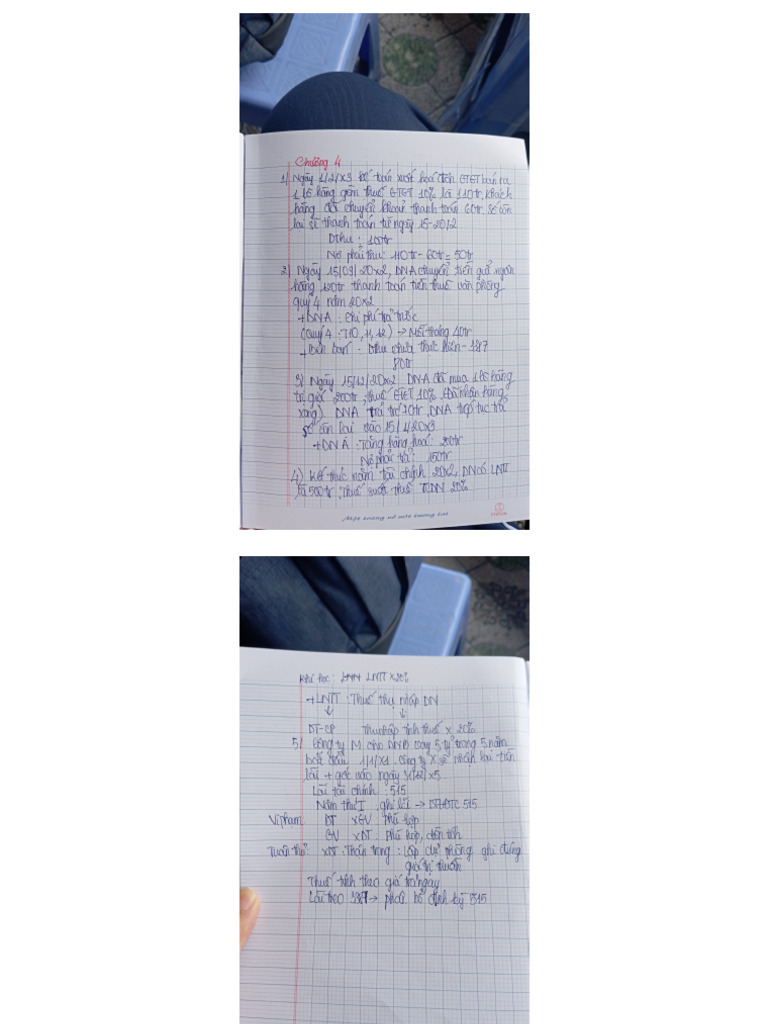 Chương 4
1/ Ngày 1/2/X3 kế toán xuất hoá đơn GTGT bán ra
1 lô hàng gồm thuế GTGT 10% là 110tr, khách
hàng đã chuyển khoản thanh toán 60tr, số còn
lại sẽ thanh toán từ ngày 15-20/2
DThu : 100tr
Nợ phải thu : 110tr - 60tr = 50tr
2/ Ngày 15/09/20x2, DNA chuyển tiền gửi ngân
hàng 120tr thanh toán tiền thuê văn phòng
quý 4 năm 20x2
+ DNA : Chi phí trả trước
(Quý 4 : T10, 11, 12) → Mỗi tháng 40tr
+ Bên bán : Dthu chưa thực hiện - 3387
80tr
3/ Ngày 15/12/20x2 DNA đã mua 1 lô hàng
trị giá 200tr, thuế GTGT 10% (Đã nhận hàng
xong) DNA trả 70tr, DNA tiếp tục trả
số còn lại vào 15/4/20x3
+ DNA : Tăng hàng hoá : 200tr
Nợ phải trả : 150tr
4) Kết thúc năm tài chính 20x2, DN có LNTT
là 500tr, Thuế suất thuế TNDN 20%
Một trang vở một tương lai
Khi học : LNTT x 20%
+ LNTT : Thuế thu nhập DN
↓ ↓
DT-CP Thu nhập tính thuế x 20%
5/ Công ty M cho DNB vay 5 tỷ trong 5 năm
bắt đầu 1/1/X1. Công ty X sẽ nhận lại tiền
lãi + gốc vào ngày 31/12/X5
Lãi tài chính : 515
Năm thứ I ghi lãi → DTHĐTC 515
Vi phạm: DT xGV Phù hợp
GV xDT : Phù hợp, dồn tích
Tuân thủ: xDT : Thận trọng : Lập dự phòng ghi đúng
giá trị thuần
Thuế tính theo giá trả ngay
Lãi treo 3387 → phân bổ định kỳ 515